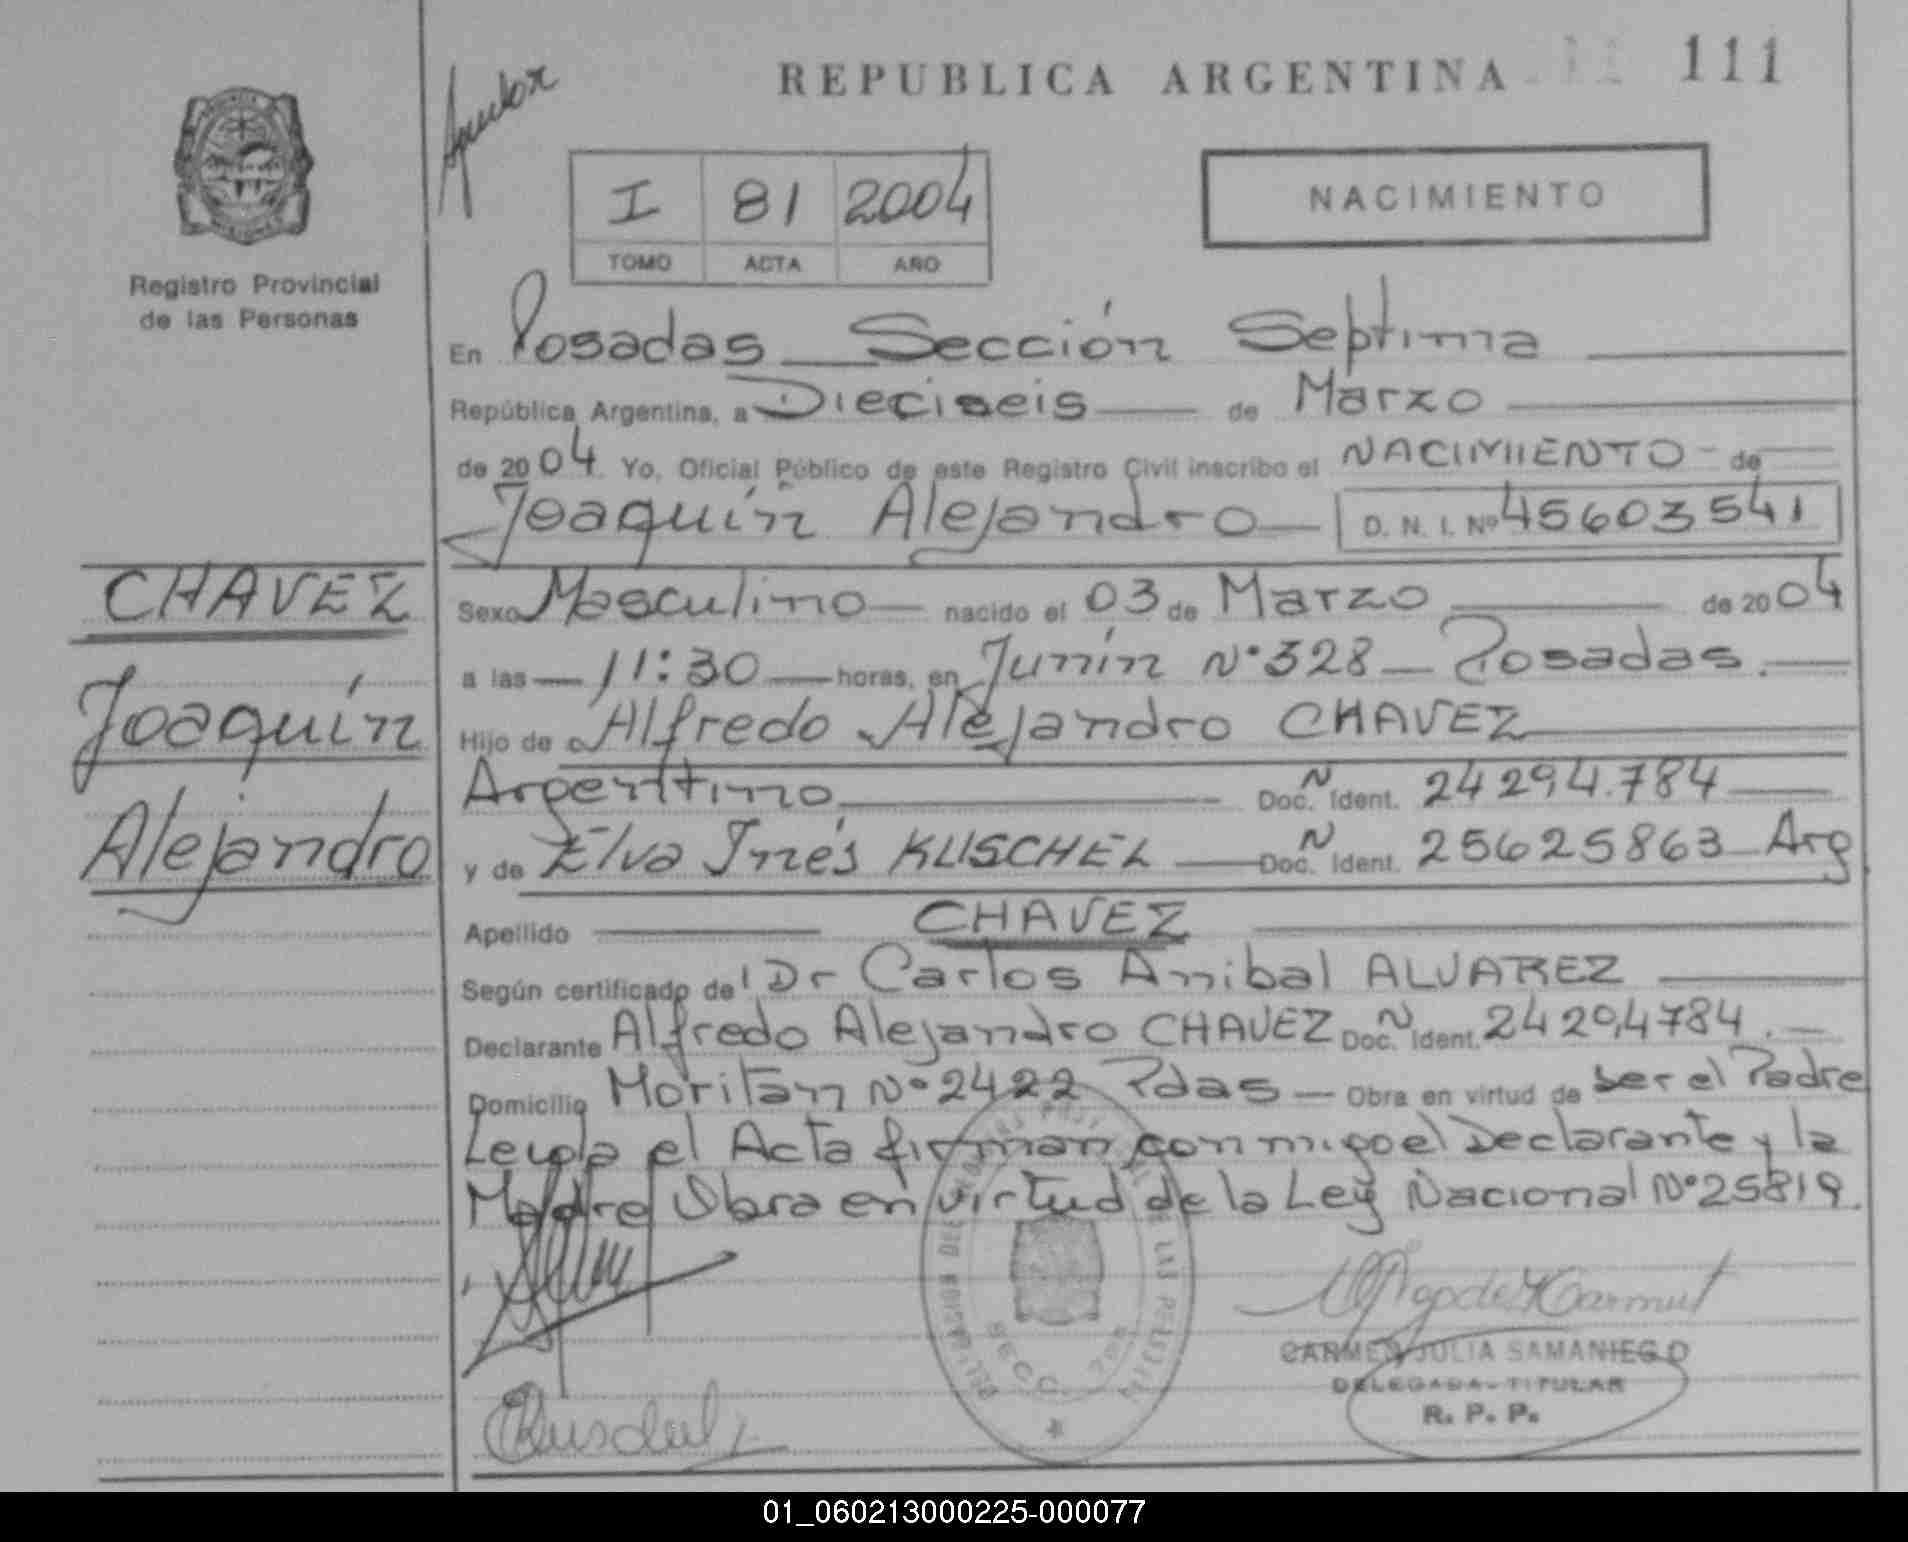 REPUBLICA ARGENTINA 111
I 81 2004
TOMO ACTA AÑO
NACIMIENTO
Registro Provincial
de las Personas
En Posadas Sección Septima
República Argentina, a Dieciseis de Marzo
de 2004 Yo, Oficial Público de este Registro Civil inscribo el NACIMIENTO de
Joaquín Alejandro D. N. I. Nº 45603541
CHAVEZ
Joaquín
Alejandro
Sexo Masculino nacido el 03 de Marzo de 2004
a las 11:30 horas, en Junín Nº 328 Posadas.
Hijo de Alfredo Alejandro CHAVEZ
Argentino Doc. N Ident. 24294.784
y de Elva Inés KUSCHEL Doc. N Ident. 25625863 Arg
Apellido CHAVEZ
Según certificado de Dr Carlos Anibal ALVAREZ
Declarante Alfredo Alejandro CHAVEZ Doc. N Ident. 24294784.
Domicilio Nº 2422 Pdas Obra en virtud de ser el Padre
Leida el Acta firman conmigo el Declarante y la
Madre Obra en virtud de la Ley Nacional Nº 25819.
CARMEN JULIA SAMANIEGO
DELEGADA TITULAR
R. P. P.
01_060213000225-000077